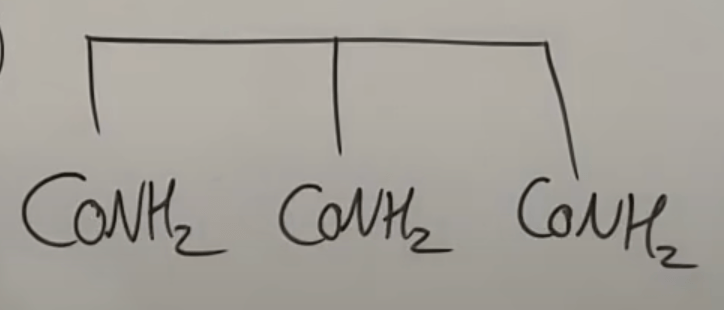 )
CoNH₂ CoNH₂ CoNH₂